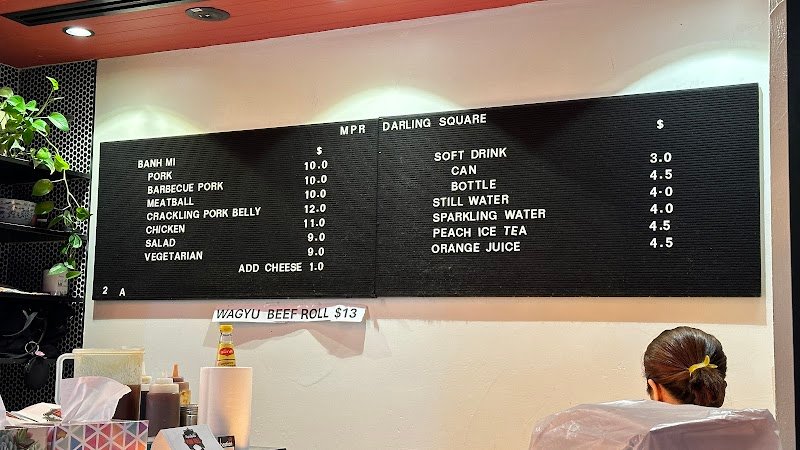 MPR DARLING SQUARE
$
BANH MI
PORK 10.0
BARBECUE PORK 10.0
MEATBALL 10.0
CRACKLING PORK BELLY 12.0
CHICKEN 11.0
SALAD 9.0
VEGETARIAN 9.0
ADD CHEESE 1.0
2 A
$
SOFT DRINK
CAN 3.0
BOTTLE 4.5
STILL WATER 4-0
SPARKLING WATER 4.0
PEACH ICE TEA 4.5
ORANGE JUICE 4.5
WAGYU BEEF ROLL $13